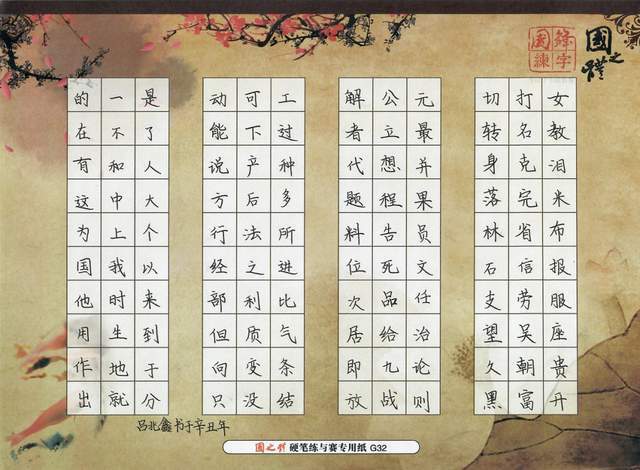 國之粹
条字
國練
的一是
在不了
有和人
这中大
为上个
国我以
他时来
用生到
作地于
出就分
动可工
能下过
说产种
方后多
行法所
经之进
部利比
但质气
向变条
只没结
解公元
者立最
代想并
题程果
料告员
位死文
次品任
居给治
即九论
放战则
切打女
转名教
身克泪
落完米
林省布
石信报
支劳服
望吴座
久朝贵
黑富丹
吕北鑫书于辛丑年
國之粹 硬笔练与赛专用纸 G32